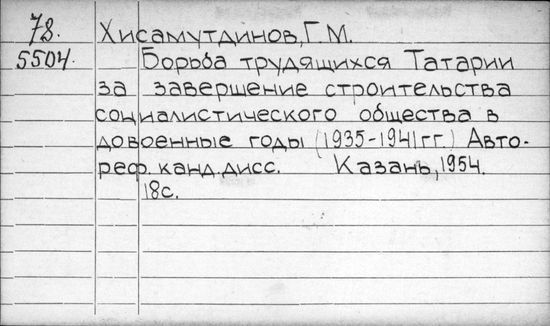 78. Хисамутдинов, Г.М.
5504. Борьба трудящихся Татарии
за завершение строительства
социалистического общества в
довоенные годы (1935-1941гг.) Авто-
реф. канд. дисс. Казань, 1954.
18с.